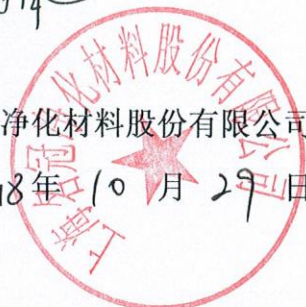 净化材料股份有限公司
18年 10 月 29 日
上海 冠净化材料股份有限公司